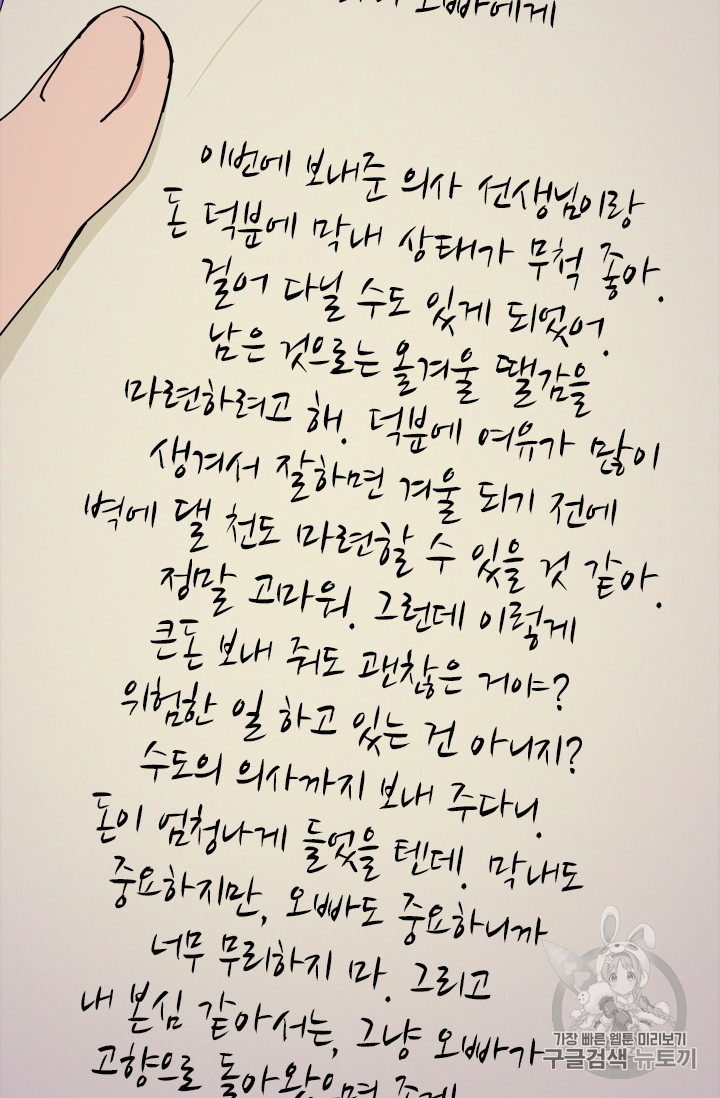 오빠에게
이번에 보내준 의사 선생님이랑
돈 덕분에 막내 상태가 무척 좋아.
걸어 다닐 수도 있게 되었어.
남은 것으로는 올겨울 땔감을
마련하려고 해. 덕분에 여유가 많이
생겨서 잘하면 겨울 되기 전에
벽에 댈 천도 마련할 수 있을 것 같아.
정말 고마워. 그런데 이렇게
큰돈 보내 줘도 괜찮은 거야?
위험한 일 하고 있는 건 아니지?
수도의 의사까지 보내 주다니.
돈이 엄청나게 들었을 텐데. 막내도
중요하지만, 오빠도 중요하니까
너무 무리하지 마. 그리고
내 본심 같아서는, 그냥 오빠가
고향으로 돌아왔으면
가장 빠른 웹툰 미리보기
구글검색 뉴토끼